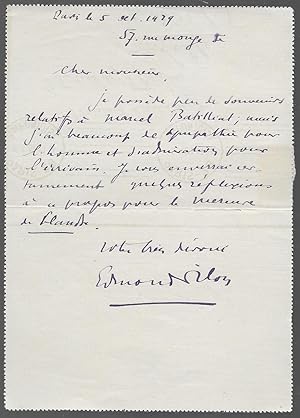 Paris le 5 oct. 1929
57. rue monge
Cher monsieur,
je possède peu de souvenirs
relatifs à Marcel Batilliat, mais
j'ai beaucoup de sympathie pour
l'homme et d'admiration pour
l'écrivain. Je vous enverrai cer-
tainement quelques réflexions
à ce propos pour le mercure
de Flandre.
Votre très dévoué
Edmond Pilon